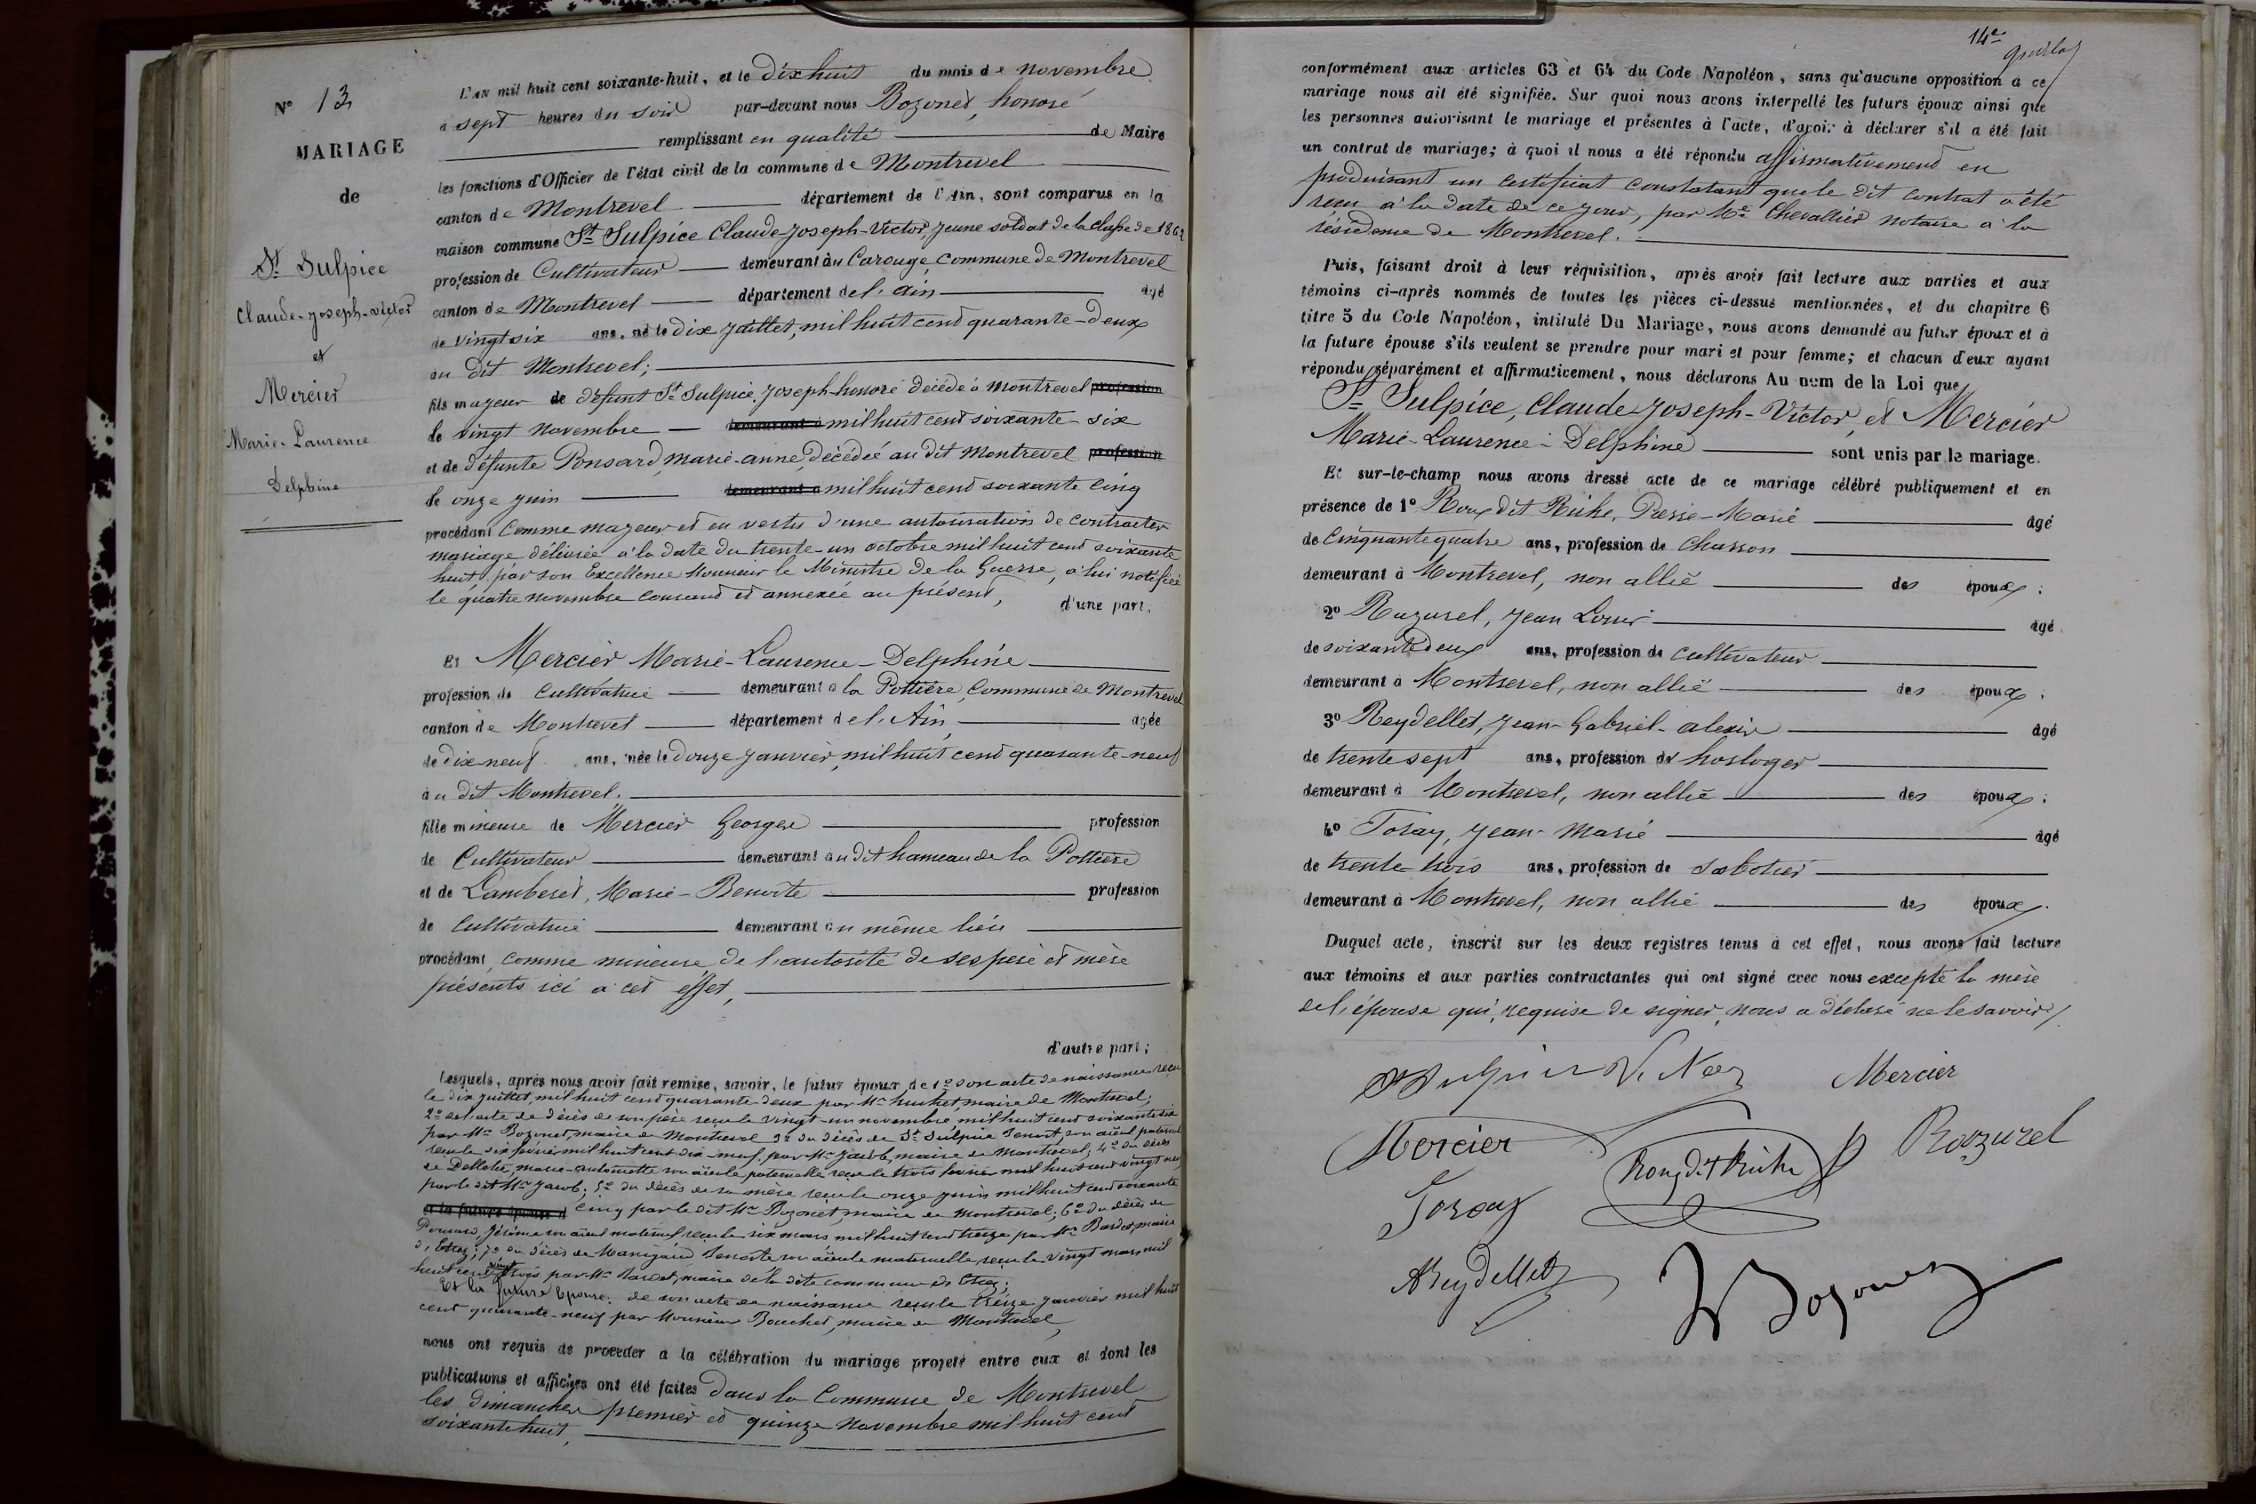 N° 13
MARIAGE
de
St Sulpice
Claude-Joseph-Victor
et
Mercier
Marie-Laurence
Delphine
L'an mil huit cent soixante-huit, et le dix huit du mois de novembre
à sept heures du soir par-devant nous Bozonet, honoré
remplissant en qualité de Maire
les fonctions d'Officier de l'état civil de la commune de Montrevel
canton de Montrevel département de l'Ain, sont comparus en la
maison commune St Sulpice Claude-Joseph-Victor, jeune soldat de la classe de 1862
profession de Cultivateur demeurant au Carouge, commune de Montrevel
canton de Montrevel département de l'ain agé
de vingt six ans, né le dix juillet, mil huit cent quarante-deux
au dit Montrevel;
fils majeur de défunt St Sulpice, Joseph-honoré décédé à Montrevel profession
le vingt novembre demeurant à mil huit cent soixante-six
et de défunte Ponsard, Marie-anne, décédée au dit Montrevel profession
le onze juin demeurant à mil huit cent soixante cinq
procédant comme majeur et en vertu d'une autorisation de contracter
mariage délivrée à la date du trente-un octobre mil huit cent soixante
huit, par son Excellence Monsieur le Ministre de la Guerre, à lui notifiée
le quatre novembre courant et annexée au présent, d'une part,
Et Mercier Marie-Laurence-Delphine
profession de cultivatrice demeurant à la Pottière, commune de Montrevel
canton de Montrevel département de l'Ain agée
de dix-neuf ans, née le douze janvier, mil huit cent quarante-neuf
au dit Montrevel.
fille mineure de Mercier George profession
de Cultivateur demeurant au dit hameau de la Pottière
et de Lamberet, Marie-Benoite profession
de cultivatrice demeurant au même lieu
procédant comme mineure, de l'autorité de ses père et mère
présents ici à cet effet,
d'autre part;
Lesquels, après nous avoir fait remise, savoir, le futur époux de 1° son acte de naissance reçu
le dix juillet, mil huit cent quarante-deux par Mr huchet, maire de Montrevel;
2° de l'acte de décès de son père reçu le vingt-un novembre mil huit cent soixante six
par Mr Bozonet, maire de Montrevel 3° du décès de St Sulpice Benoit, son aïeul paternel
reçu le six février mil huit cent dix-neuf, par Mr Jacob, maire de Montrevel; 4° du décès
de Delloche, marie-antoinette son aïeule paternelle reçu le trois février mil huit cent vingt un
par le dit Mr Jacob; 5° du décès de sa mère reçu le onze juin mil huit cent soixante
et la future épouse d cinq par le dit Mr Bozonet, maire de Montrevel; 6° du décès de
Ponsard, Jérôme son aïeul maternel, reçu le six mars mil huit cent treize par Mr Bardet, maire
d'Etrez; 7° du décès de Manigand Benoite son aïeule maternelle reçu le vingt mars mil
huit cent vingt trois par Mr Bardet, maire de la dite commune de Etrez;
Et la future épouse. de son acte de naissance reçu le treize janvier mil huit
cent quarante-neuf par Monsieur Bouchet, maire de Montrevel,
nous ont requis de procéder à la célébration du mariage projeté entre eux et dont les
publications et affiches ont été faites dans la Commune de Montrevel
les dimanches premier et quinze novembre mil huit cent
soixante huit,
14e
conformément aux articles 63 et 64 du Code Napoléon, sans qu'aucune opposition à ce
mariage nous ait été signifiée. Sur quoi nous avons interpellé les futurs époux ainsi que
les personnes autorisant le mariage et présentes à l'acte, d'avoir à déclarer s'il a été fait
un contrat de mariage; à quoi il nous a été répondu affirmativement en
produisant un certificat constatant que le dit contrat a été
reçu à la date de ce jour, par Me Chevallier notaire à la
résidence de Montrevel.
Puis, faisant droit à leur réquisition, après avoir fait lecture aux parties et aux
témoins ci-après nommés de toutes les pièces ci-dessus mentionnées, et du chapitre 6
titre 5 du Code Napoléon, intitulé Du Mariage, nous avons demandé au futur époux et à
la future épouse s'ils veulent se prendre pour mari et pour femme; et chacun d'eux ayant
répondu séparément et affirmativement, nous déclarons Au nom de la Loi que
St Sulpice, Claude-Joseph-Victor, et Mercier
Marie-Laurence-Delphine sont unis par le mariage.
Et sur-le-champ nous avons dressé acte de ce mariage célébré publiquement et en
présence de 1° Roux dit Riche, Pierre-Marie agé
de cinquante quatre ans, profession de charron
demeurant à Montrevel, non allié des époux;
2° Razurel, Jean Louis agé
de soixante deux ans, profession de cultivateur
demeurant à Montrevel, non allié des époux.
3° Reydellet, Jean-Gabriel-alexis agé
de trente sept ans, profession de horloger
demeurant à Montrevel, non allié des époux;
4° Foray, Jean-Marie agé
de trente-trois ans, profession de sabotier
demeurant à Montrevel, non allié des époux.
Duquel acte, inscrit sur les deux registres tenus à cet effet, nous avons fait lecture
aux témoins et aux parties contractantes qui ont signé avec nous excepté la mère
de l'épouse qui, requise de signer, nous a déclaré ne le savoir
Mercier
Mercier
Roux dit Riche
Razurel
Foray
AReydellet
H Bozonet